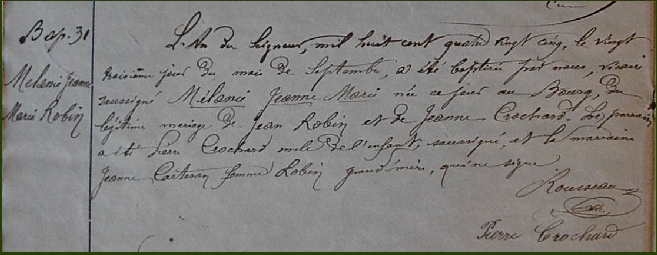 Bap. 31
Mélanie Jeanne
Marie Robin
L'An du Seigneur, mil huit cent quatre vingt cinq, le vingt
troisième jour du mois de Septembre, a été baptisée par nous, vicaire
soussigné Mélanie Jeanne Marie née ce jour au Bourg, du
légitime mariage de Jean Robin et de Jeanne Crochard. Le parrain
a été Pierre Crochard oncle de l'enfant, soussigné, et la marraine
Jeanne femme Robin grand'mère, qui ne signe
Rousseau
Pierre Crochard